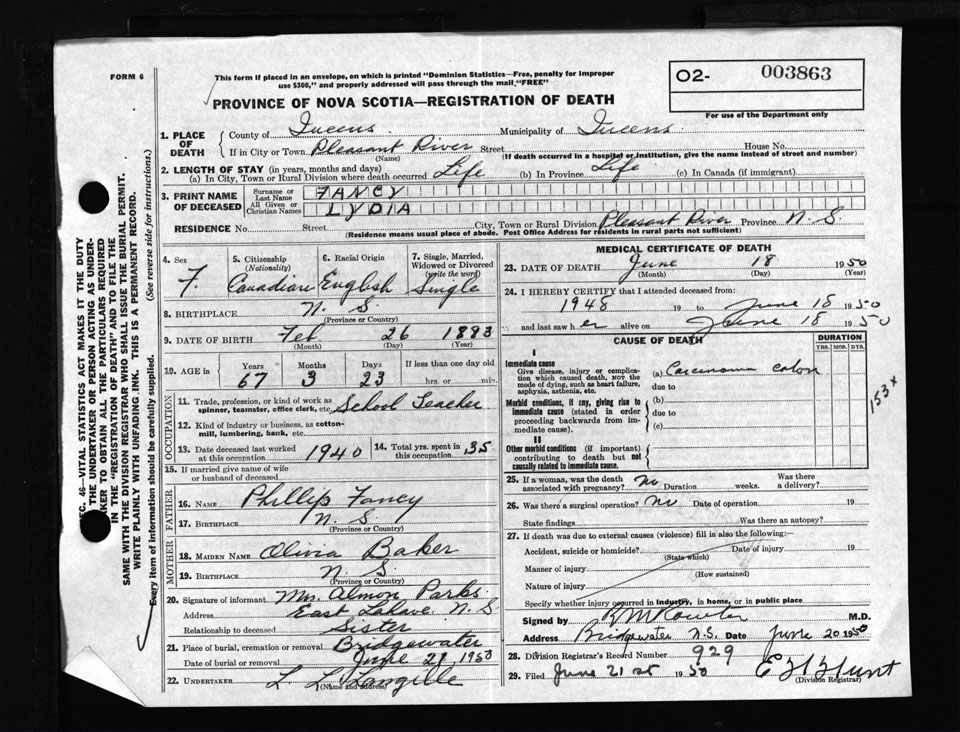 FORM 6
This form if placed in an envelope, on which is printed "Dominion Statistics—Free, penalty for improper
use $300," and properly addressed will pass through the mail "FREE"
O2- 003863
For use of the Department only
PROVINCE OF NOVA SCOTIA—REGISTRATION OF DEATH
1. PLACE OF DEATH County of Queens Municipality of Queens
If in City or Town Pleasant River Street House No.
(Name) (If death occurred in a hospital or institution, give the name instead of street and number)
2. LENGTH OF STAY (in years, months and days)
(a) In City, Town or Rural Division where death occurred Life (b) In Province Life (c) In Canada (if immigrant)
3. PRINT NAME OF DECEASED Surname or Last Name FANCY
All Given or Christian Names LYDIA
RESIDENCE No. Street City, Town or Rural Division Pleasant River Province N.S.
(Residence means usual place of abode. Post Office Address for residents in rural parts not sufficient)
4. Sex F.
5. Citizenship (Nationality) Canadian
6. Racial Origin English
7. Single, Married, Widowed or Divorced (write the word) Single
8. BIRTHPLACE N. S
(Province or Country)
9. DATE OF BIRTH Feb 26 1883
(Month) (Day) (Year)
10. AGE in Years Months Days If less than one day
67 3 23 hrs. or min.
OCCUPATION
11. Trade, profession, or kind of work as spinner, teamster, office clerk, etc. School Teacher
12. Kind of industry or business, as cotton-mill, lumbering, bank, etc.
13. Date deceased last worked at this occupation 1940
14. Total yrs. spent in this occupation 35
15. If married give name of wife or husband of deceased
FATHER
16. NAME Phillip Fancy
17. BIRTHPLACE N. S
(Province or Country)
MOTHER
18. MAIDEN NAME Olivia Baker
19. BIRTHPLACE N. S.
(Province or Country)
20. Signature of informant Mrs. Almon Parks
Address East Lahave N. S
Relationship to deceased Sister
21. Place of burial, cremation or removal Bridgewater
Date of burial or removal June 21 1950
22. UNDERTAKER L. L Langille
(Name and address)
MEDICAL CERTIFICATE OF DEATH
23. DATE OF DEATH June 18 1950
(Month) (Day) (Year)
24. I HEREBY CERTIFY that I attended deceased from:
1948 19 to June 18 1950
and last saw her alive on June 18 1950
CAUSE OF DEATH
DURATION
YRS. MOS. DYS.
I
Immediate cause
Give disease, injury or complication which caused death, NOT the mode of dying, such as heart failure, asphyxia, asthenia, etc.
(a) Carcinoma colon
due to
Morbid conditions, if any, giving rise to immediate cause (stated in order proceeding backwards from immediate cause).
(b)
due to
(c)
II
Other morbid conditions (if important) contributing to death but not causally related to immediate cause.
153x
25. If a woman, was the death associated with pregnancy? No Duration weeks. Was there a delivery?
26. Was there a surgical operation? No Date of operation 19
State findings Was there an autopsy?
27. If death was due to external causes (violence) fill in also the following:
Accident, suicide or homicide? Date of injury 19
(State which)
Manner of injury
(How sustained)
Nature of injury
Specify whether injury occurred in industry, in home, or in public place
Signed by M.D.
Address Bridgewater N.S. Date June 20 1950
28. Division Registrar's Record Number 929
29. Filed June 21st 1950
(Division Registrar)
SEC. 46—VITAL STATISTICS ACT MAKES IT THE DUTY
THE UNDERTAKER OR PERSON ACTING AS UNDER-
TAKER TO OBTAIN ALL THE PARTICULARS REQUIRED
IN THE "REGISTRATION OF DEATH" AND TO FILE THE
SAME WITH THE DIVISION REGISTRAR WHO SHALL ISSUE THE BURIAL PERMIT.
WRITE PLAINLY WITH UNFADING INK. THIS IS A PERMANENT RECORD.
Every item of information should be carefully supplied. (See reverse side for instructions.)